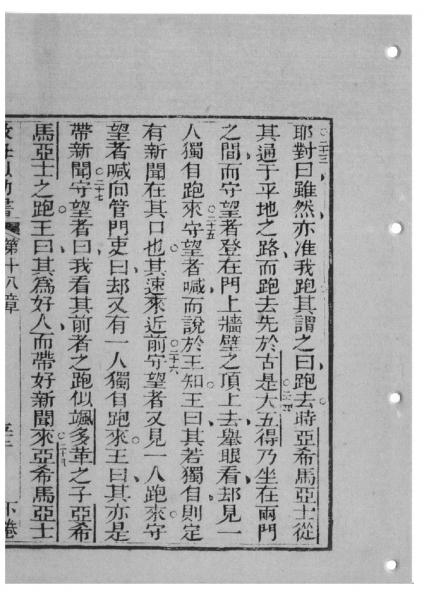 二十三耶對曰雖然亦准我跑其謂之曰跑去時亞希馬亞士從
其通于平地之路而跑去先於古是大五得乃坐在兩門
之間而守望者登在門上牆壁之頂上去舉眼看却見一
人獨自跑來二十五守望者喊而說於王知王曰其若獨自則定
有新聞在其口也其速來近前二十六守望者又見一人跑來守
望者喊向管門吏曰却又有一人獨自跑來王曰其亦是
帶新聞二十七守望者曰我看其前者之跑似颯多革之子亞希
馬亞士之跑王曰其爲好人而帶好新聞來亞希馬亞士
第十八章 下卷